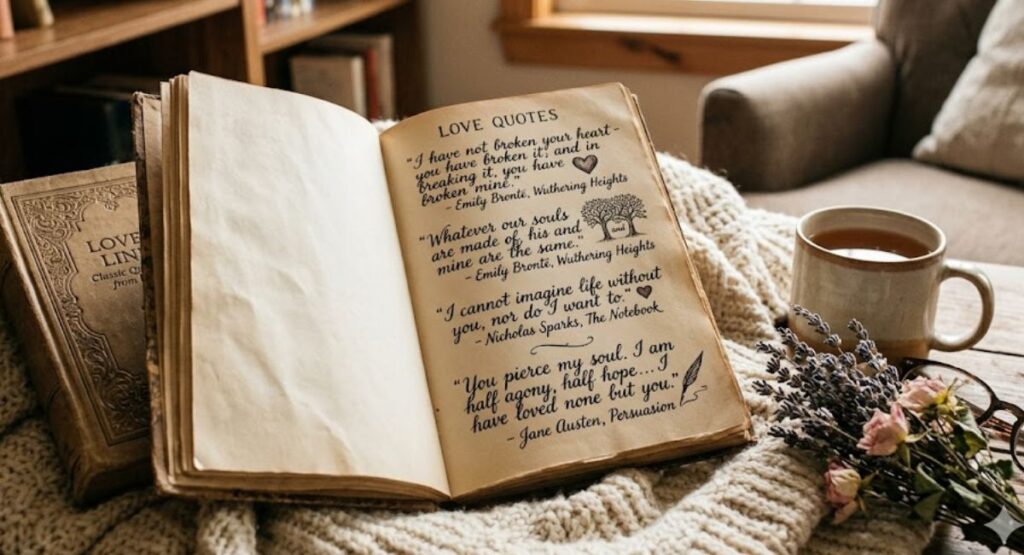 LOVE QUOTES
"I have not broken your heart -
you have broken it; and in
breaking it, you have
broken mine."
- Emily Brontë, Wuthering Heights
"Whatever our souls
are made of, his and
mine are the same."
soul
- Emily Brontë, Wuthering Heights
"I cannot imagine life without
you, nor do I want to."
- Nicholas Sparks, The Notebook
"You pierce my soul. I am
half agony, half hope... I
have loved none but you."
- Jane Austen, Persuasion
LOVE
LIN
Classic Q
from